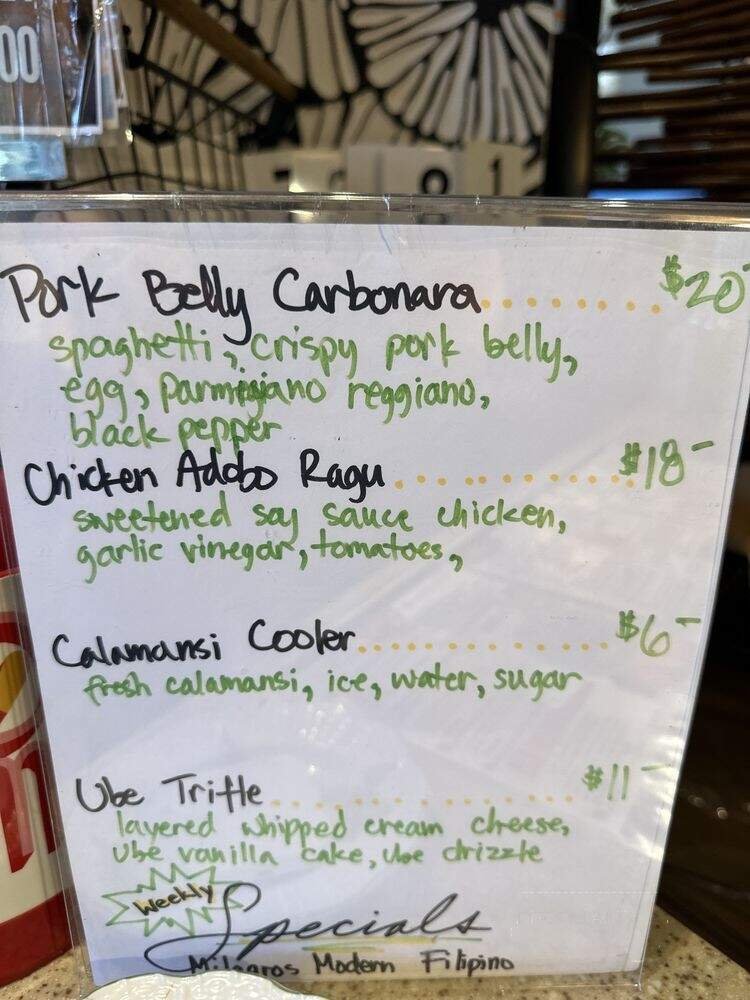 00
Pork Belly Carbonara ........ $20-
spaghetti, crispy pork belly,
egg, parmigiano reggiano,
black pepper
Chicken Adobo Ragu ............ $18-
sweetened soy sauce chicken,
garlic vinegar, tomatoes,
Calamansi Cooler ............ $6-
fresh calamansi, ice, water, sugar
Ube Trifle ............ $11-
layered whipped cream cheese,
ube vanilla cake, ube drizzle
Weekly
Specials
Milagros Modern Filipino